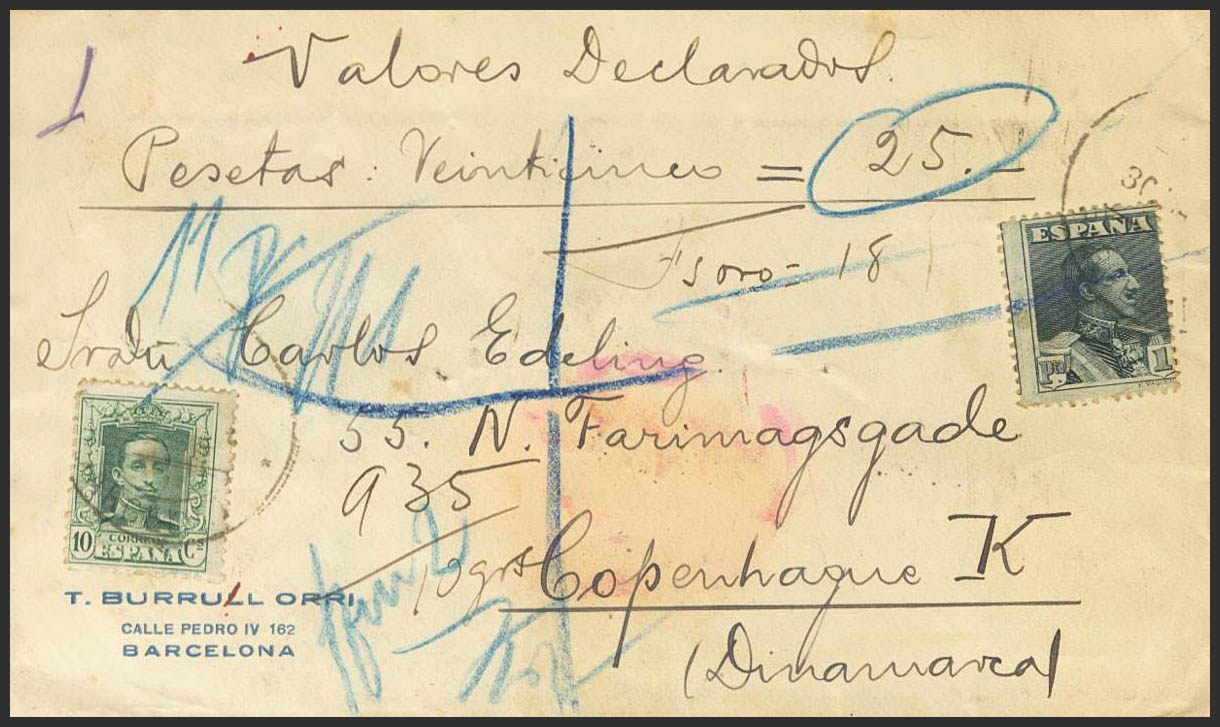 Valores Declarados.
Pesetas: Veinticinco = 25.-
18
Carlos Edeling.
55. N. Farimagsgade
935
10 grs
Copenhague K
(Dinamarca)
ESPAÑA
1
10 CORREOS Cs
ESPAÑA
T. BURRULL ORRI
CALLE PEDRO IV 162
BARCELONA